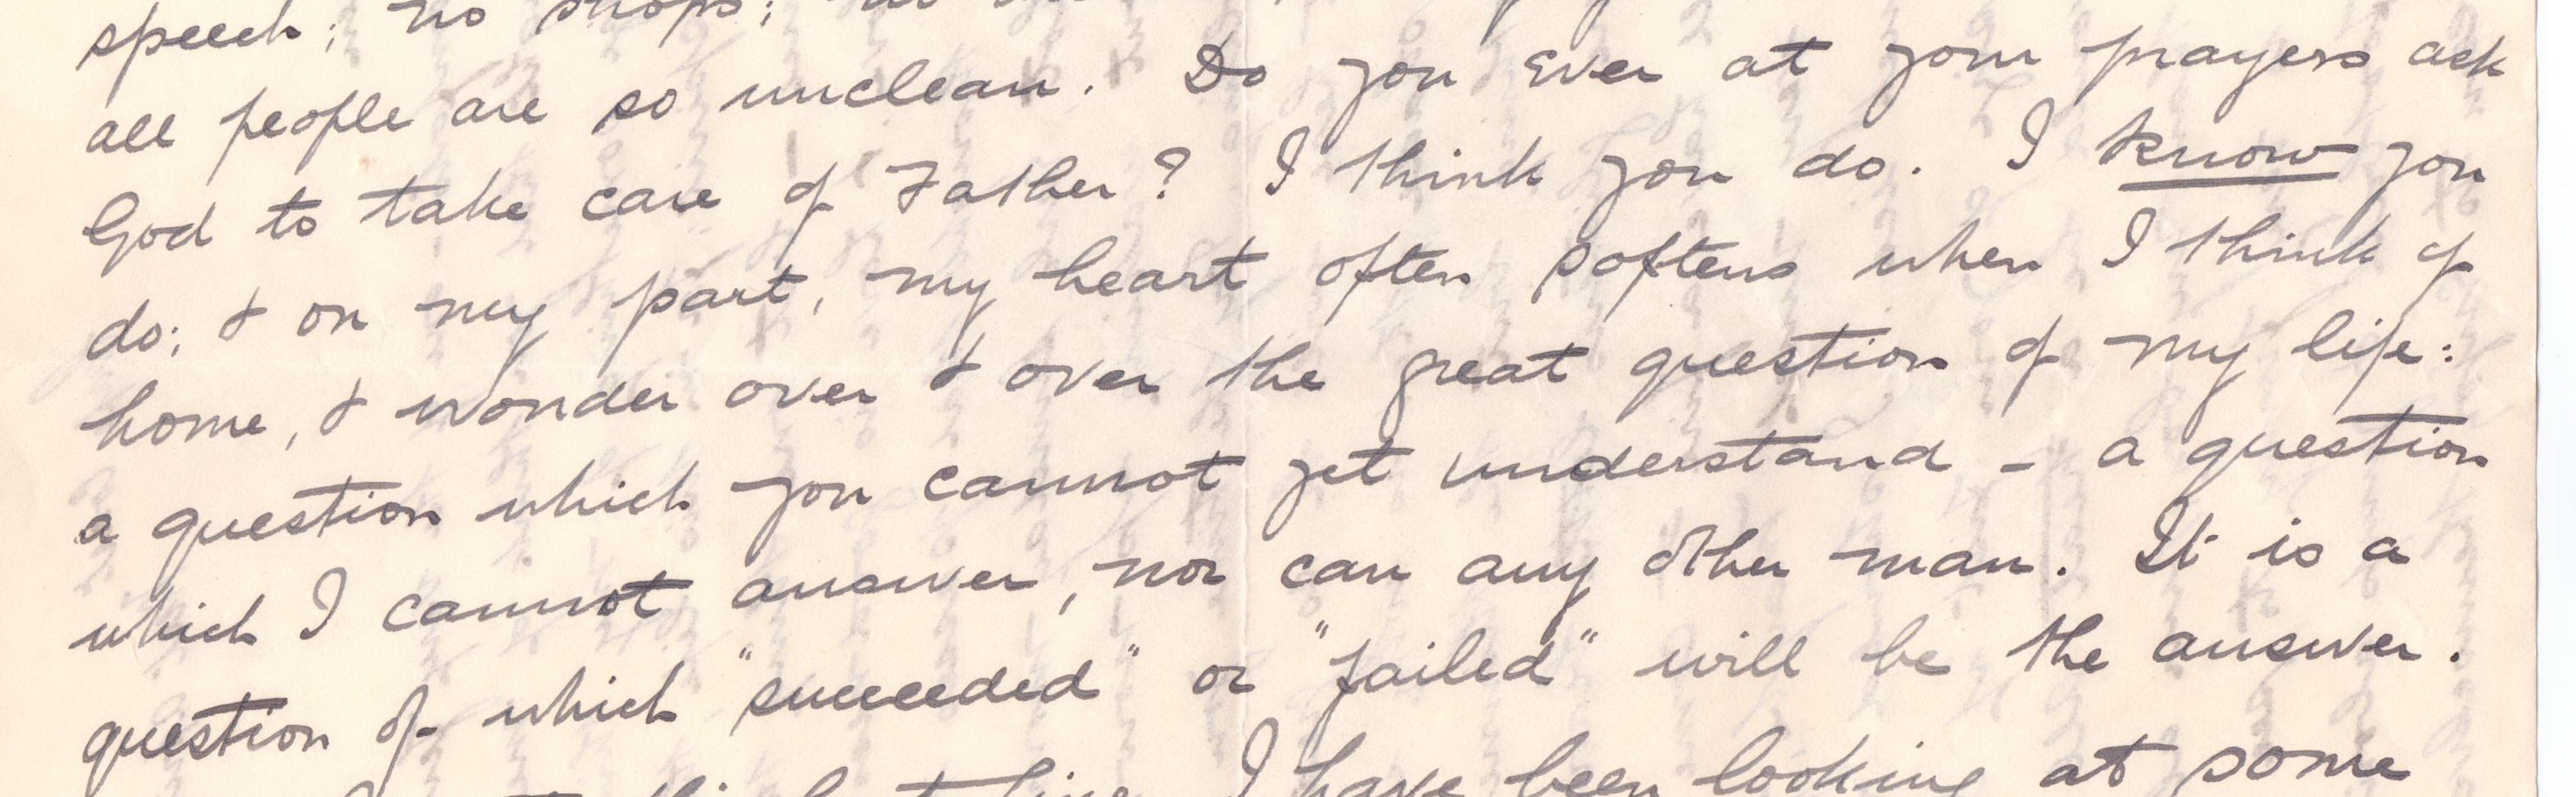 speech; no shops;
all people are so unclean. Do you ever at your prayers ask
God to take care of Father? I think you do. I know you
do; & on my part, my heart often softens when I think of
home, & wonder over & over the great question of my life:
a question which you cannot yet understand - a question
which I cannot answer, nor can any other man. It is a
question of which "succeeded" or "failed" will be the answer.
I have been looking at some